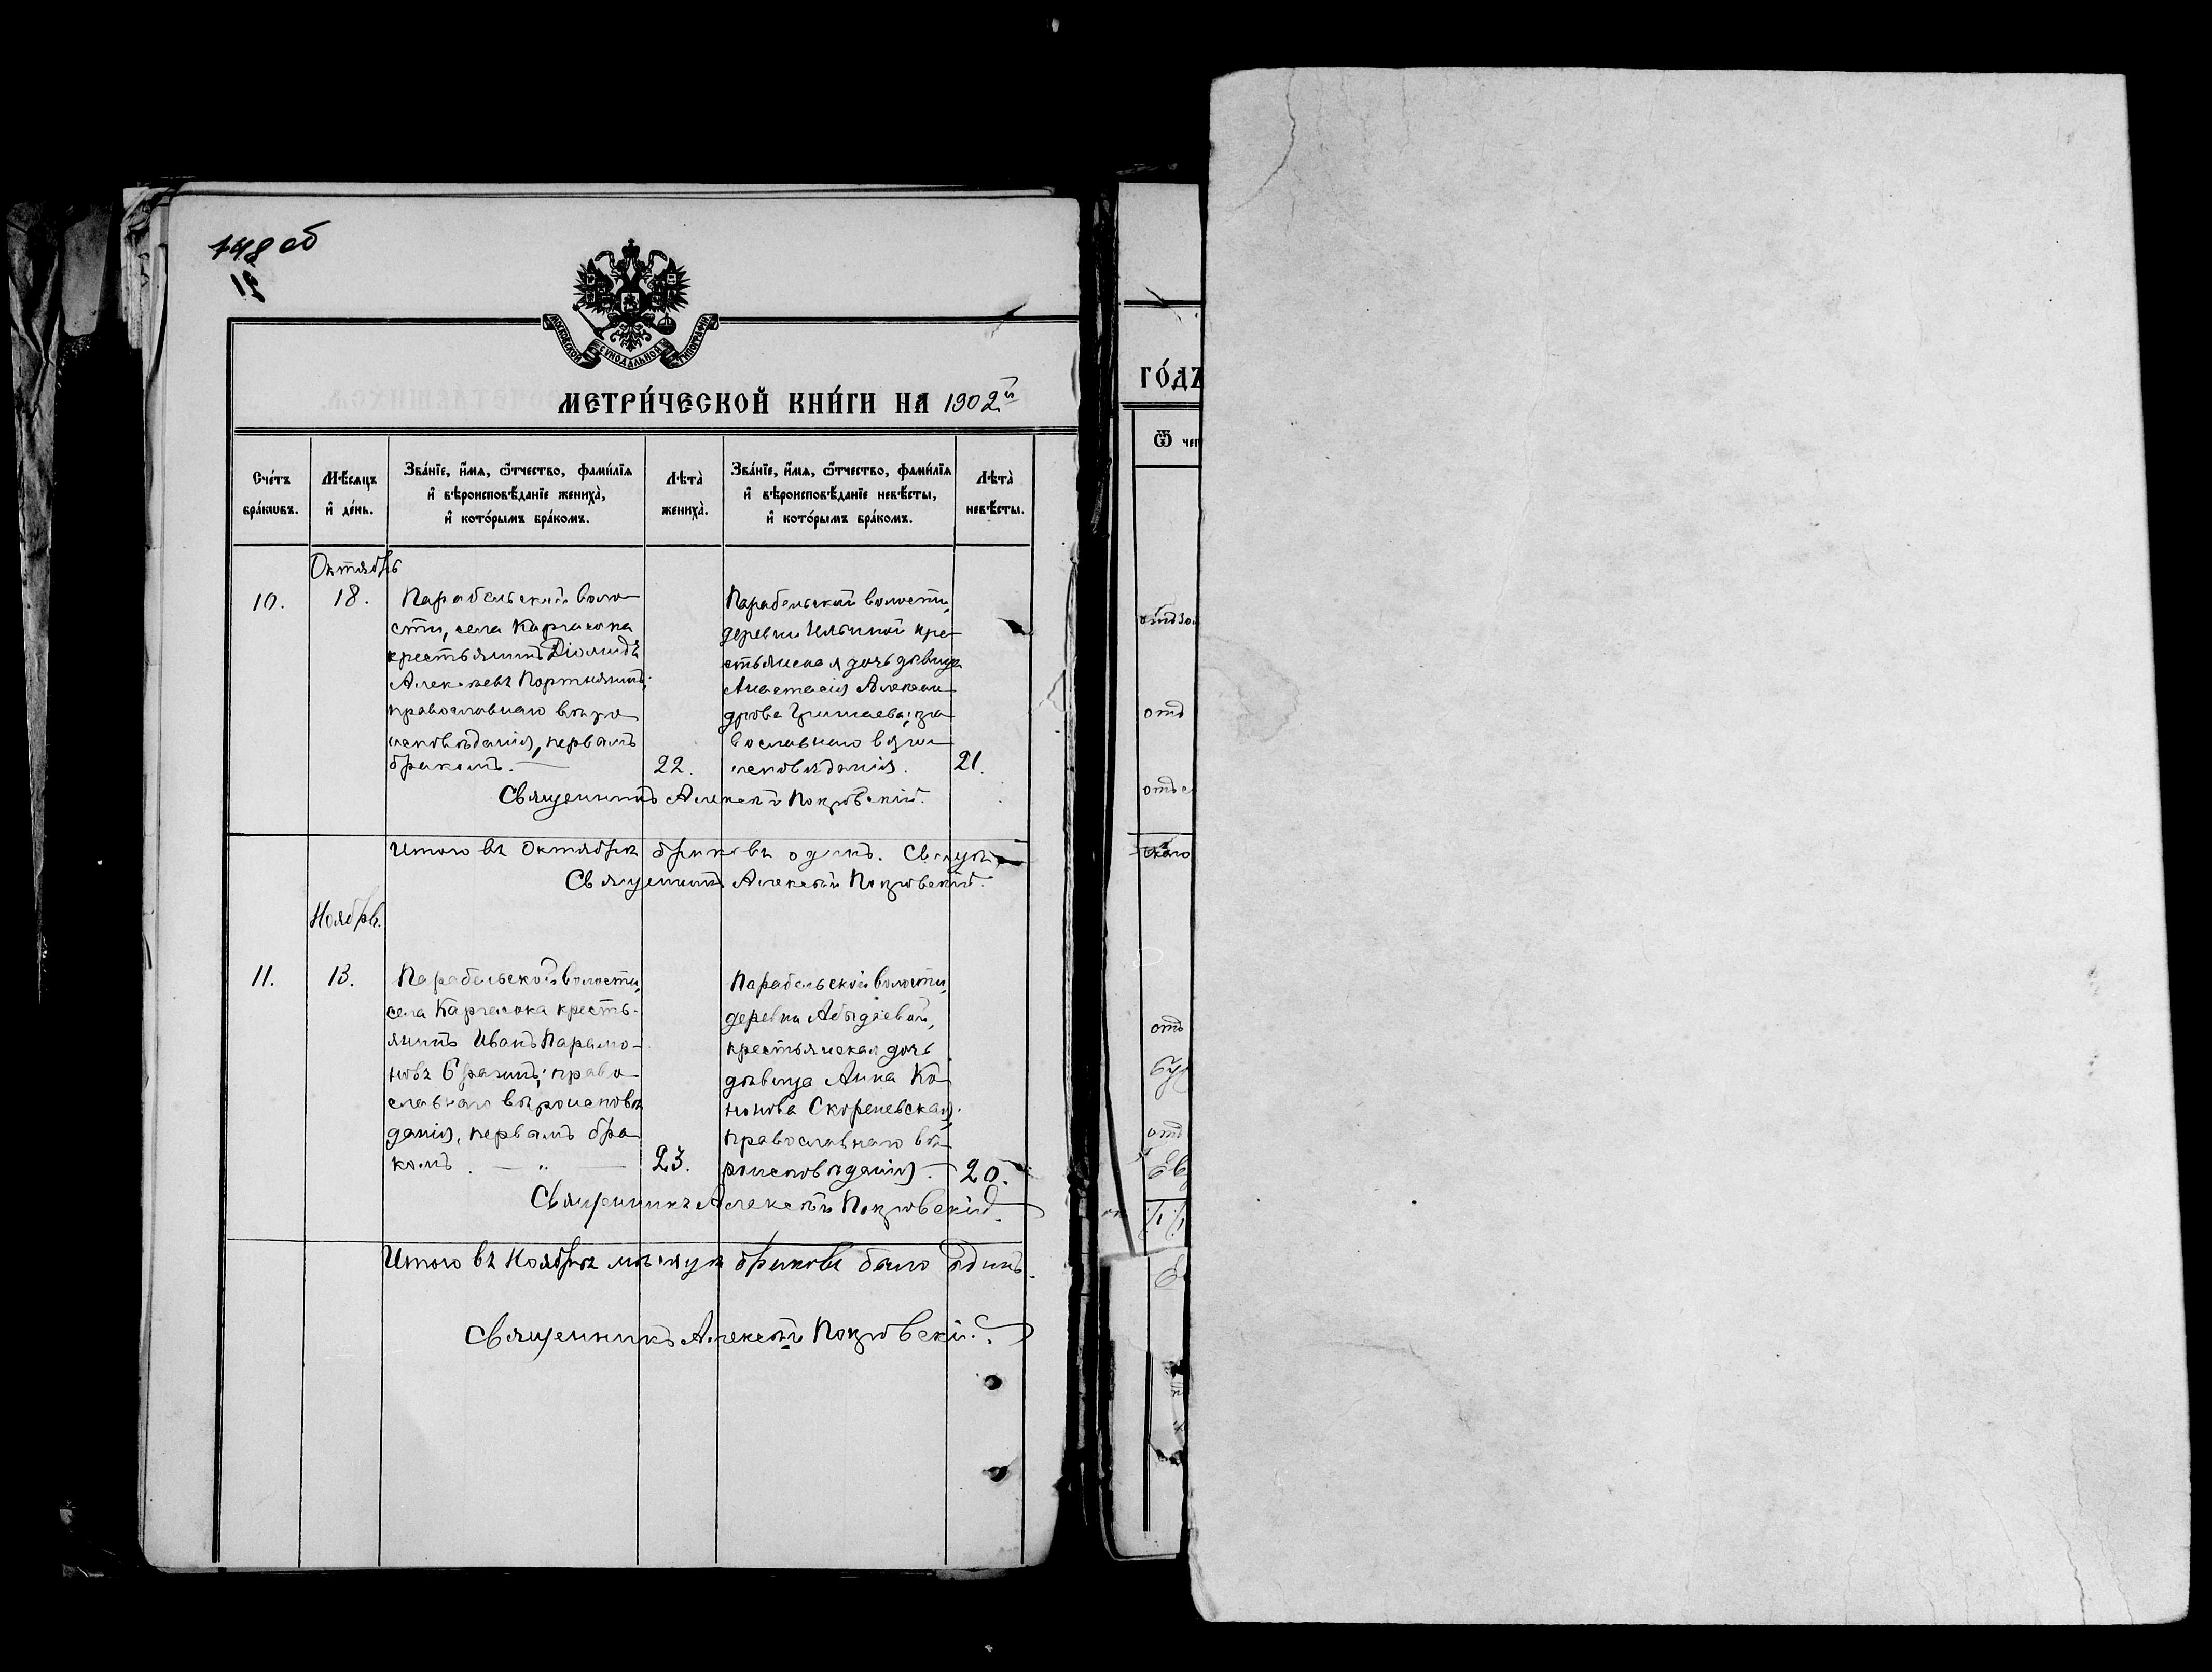 748 об
МОСКОВСКОЙ СѴНОДАЛЬНОЙ ТИПОГРАФІИ
МЕТРИ́ЧЕСКОЙ КНИ́ГИ НА 1902й
Сче́тъ бра́кѡвъ.
Мѣ́сѧцъ и҆ де́нь.
Зва́нїе, и҆́мѧ, ѻ҆́тчество, фами́лїѧ
и҆ вѣроисповѣ́данїе жениха̀,
и҆ кото́рымъ бра́комъ.
Лѣта̀ жениха̀.
Зва́нїе, и҆́мѧ, ѻ҆́тчество, фами́лїѧ
и҆ вѣроисповѣ́данїе невѣ́сты,
и҆ кото́рымъ бра́комъ.
Лѣта̀ невѣ́сты.
Октябрь
10.
18.
Парабельской воло-
сти, села Каргасока
крестьянинъ Діомидъ
Алексѣевъ Портнянинъ;
православнаго вѣро-
исповѣданія, первымъ
бракомъ.
22.
Парабельской волости,
деревни Ильиной кре-
стьянская дочь дѣвица
Анастасія Алексан-
дрова Гришаева; пра-
вославнаго вѣрои-
сповѣданія.
21.
Священникъ Алексѣй Покровскій.
Итого въ Октябрѣ браковъ одинъ.
Священникъ Алексѣй Покровскій.
Ноябрь.
11.
13.
Парабельской волости,
села Каргасока кресть-
янинъ Иванъ Парамо-
новъ Бразинъ; право-
славнаго вѣроисповѣ-
данія, первымъ бра-
комъ.
23.
Парабельской волости,
деревни Абыдаевой,
крестьянская дочь
дѣвица Анна Ко-
нонова Скореневская;
православнаго вѣ-
роисповѣданія.
20.
Священникъ Алексѣй Покровскій.
Итого въ Ноябрѣ мѣсяцѣ браковъ было одинъ.
Священникъ Алексѣй Покровскій.
ГО́ДЪ
Ѿ
отъ
отъ
отъ